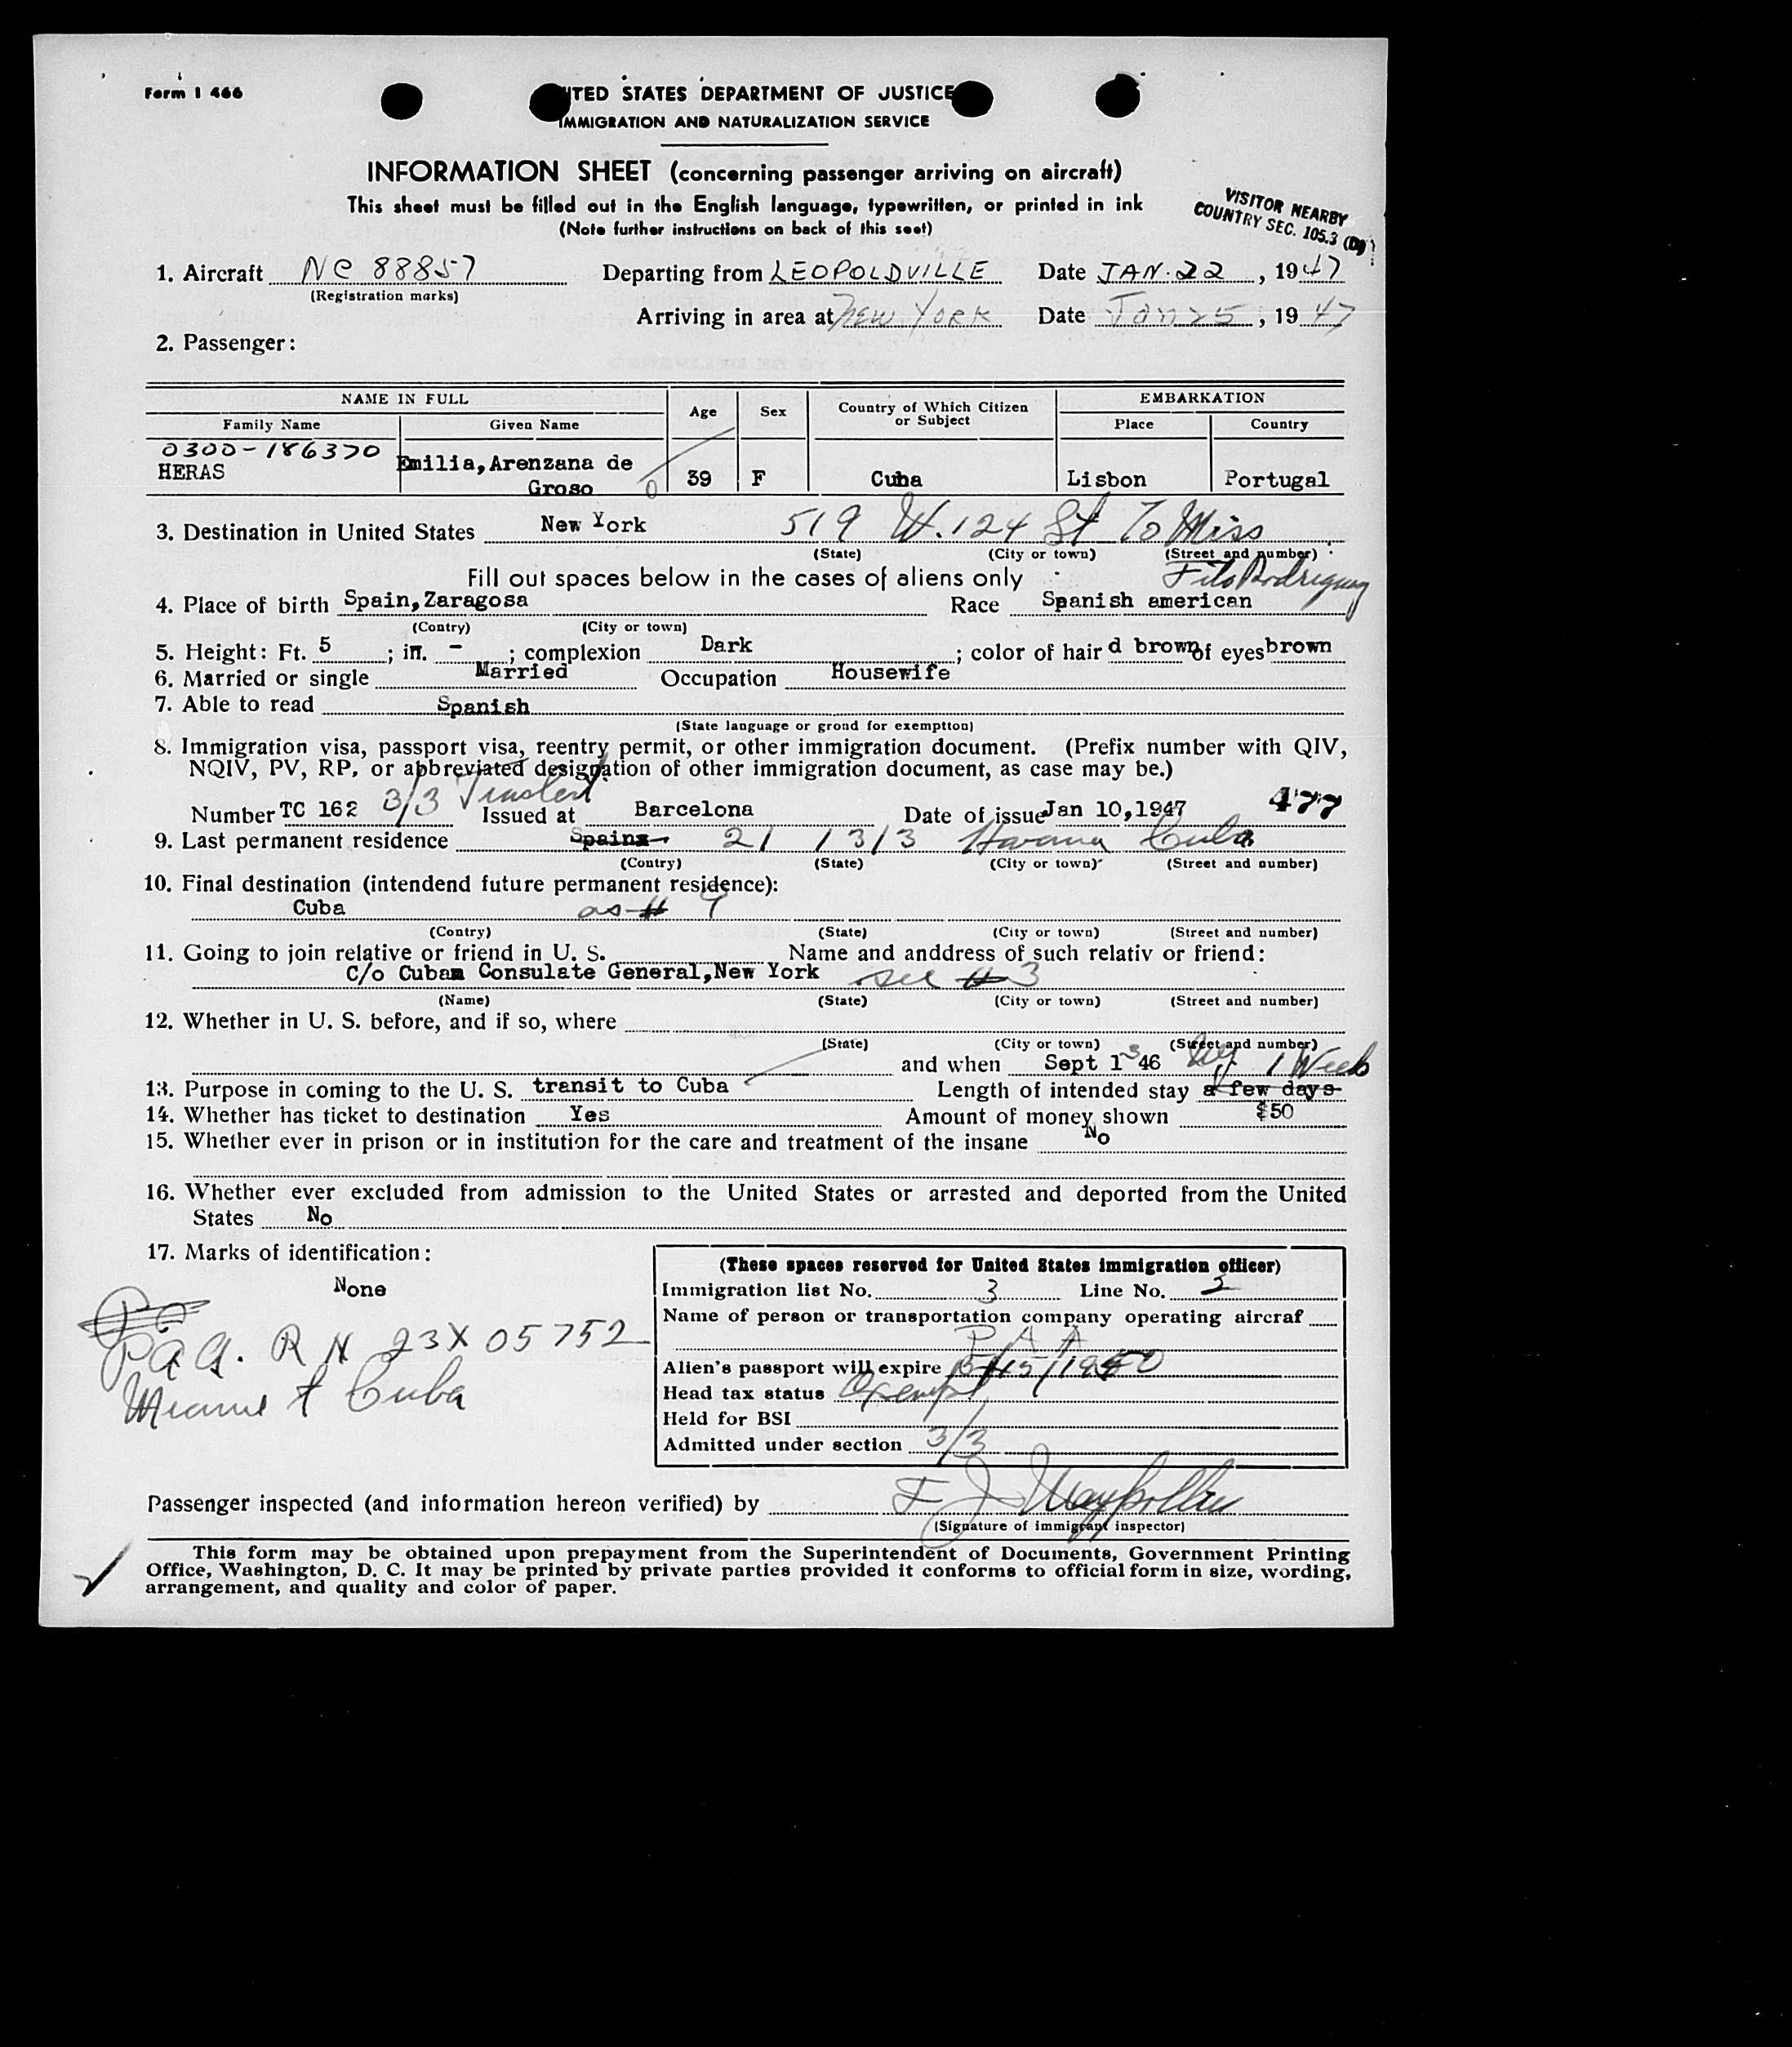 Form I 466
UNITED STATES DEPARTMENT OF JUSTICE
IMMIGRATION AND NATURALIZATION SERVICE
INFORMATION SHEET (concerning passenger arriving on aircraft)
This sheet must be filled out in the English language, typewritten, or printed in ink
(Note further instructions on back of this seet)
VISITOR NEARBY
COUNTRY SEC. 105.3 (D)
1. Aircraft NC 88857 Departing from LEOPOLDVILLE Date JAN. 22, 1947
(Registration marks)
Arriving in area at New York Date Jan 25, 1947
2. Passenger:
NAME IN FULL Age Sex Country of Which Citizen or Subject EMBARKATION
Family Name Given Name Place Country
0300-186370
HERAS Emilia, Arenzana de Groso 39 F Cuba Lisbon Portugal
3. Destination in United States New York 519 W. 124 St To Miss
(State) (City or town) (Street and number)
Rodriguez
Fill out spaces below in the cases of aliens only
4. Place of birth Spain, Zaragosa Race Spanish american
(Contry) (City or town)
5. Height: Ft. 5 ; in. - ; complexion Dark ; color of hair d brown of eyes brown
6. Married or single Married Occupation Housewife
7. Able to read Spanish
(State language or grond for exemption)
8. Immigration visa, passport visa, reentry permit, or other immigration document. (Prefix number with QIV,
NQIV, PV, RP, or abbreviated designation of other immigration document, as case may be.)
Number TC 162 3/3 Issued at Barcelona Date of issue Jan 10, 1947 477
9. Last permanent residence Spain 21 / 313 Havana Cuba
(Contry) (State) (City or town) (Street and number)
10. Final destination (intendend future permanent residence):
Cuba as # 9
(Contry) (State) (City or town) (Street and number)
11. Going to join relative or friend in U. S. Name and anddress of such relativ or friend:
C/o Cuban Consulate General, New York see # 3
(Name) (State) (City or town) (Street and number)
12. Whether in U. S. before, and if so, where
(State) (City or town) (Street and number)
and when Sept 13 46 1 Week
13. Purpose in coming to the U. S. transit to Cuba Length of intended stay a few days
14. Whether has ticket to destination Yes Amount of money shown $50
15. Whether ever in prison or in institution for the care and treatment of the insane No
16. Whether ever excluded from admission to the United States or arrested and deported from the United
States No
17. Marks of identification:
None
PAA. RN 23X05752
Miami & Cuba
(These spaces reserved for United States immigration officer)
Immigration list No. 3 Line No. 2
Name of person or transportation company operating aircraf
P A A
Alien's passport will expire 5/15/1950
Head tax status Exempt
Held for BSI
Admitted under section 3/3
Passenger inspected (and information hereon verified) by
(Signature of immigrant inspector)
This form may be obtained upon prepayment from the Superintendent of Documents, Government Printing
Office, Washington, D. C. It may be printed by private parties provided it conforms to official form in size, wording,
arrangement, and quality and color of paper.